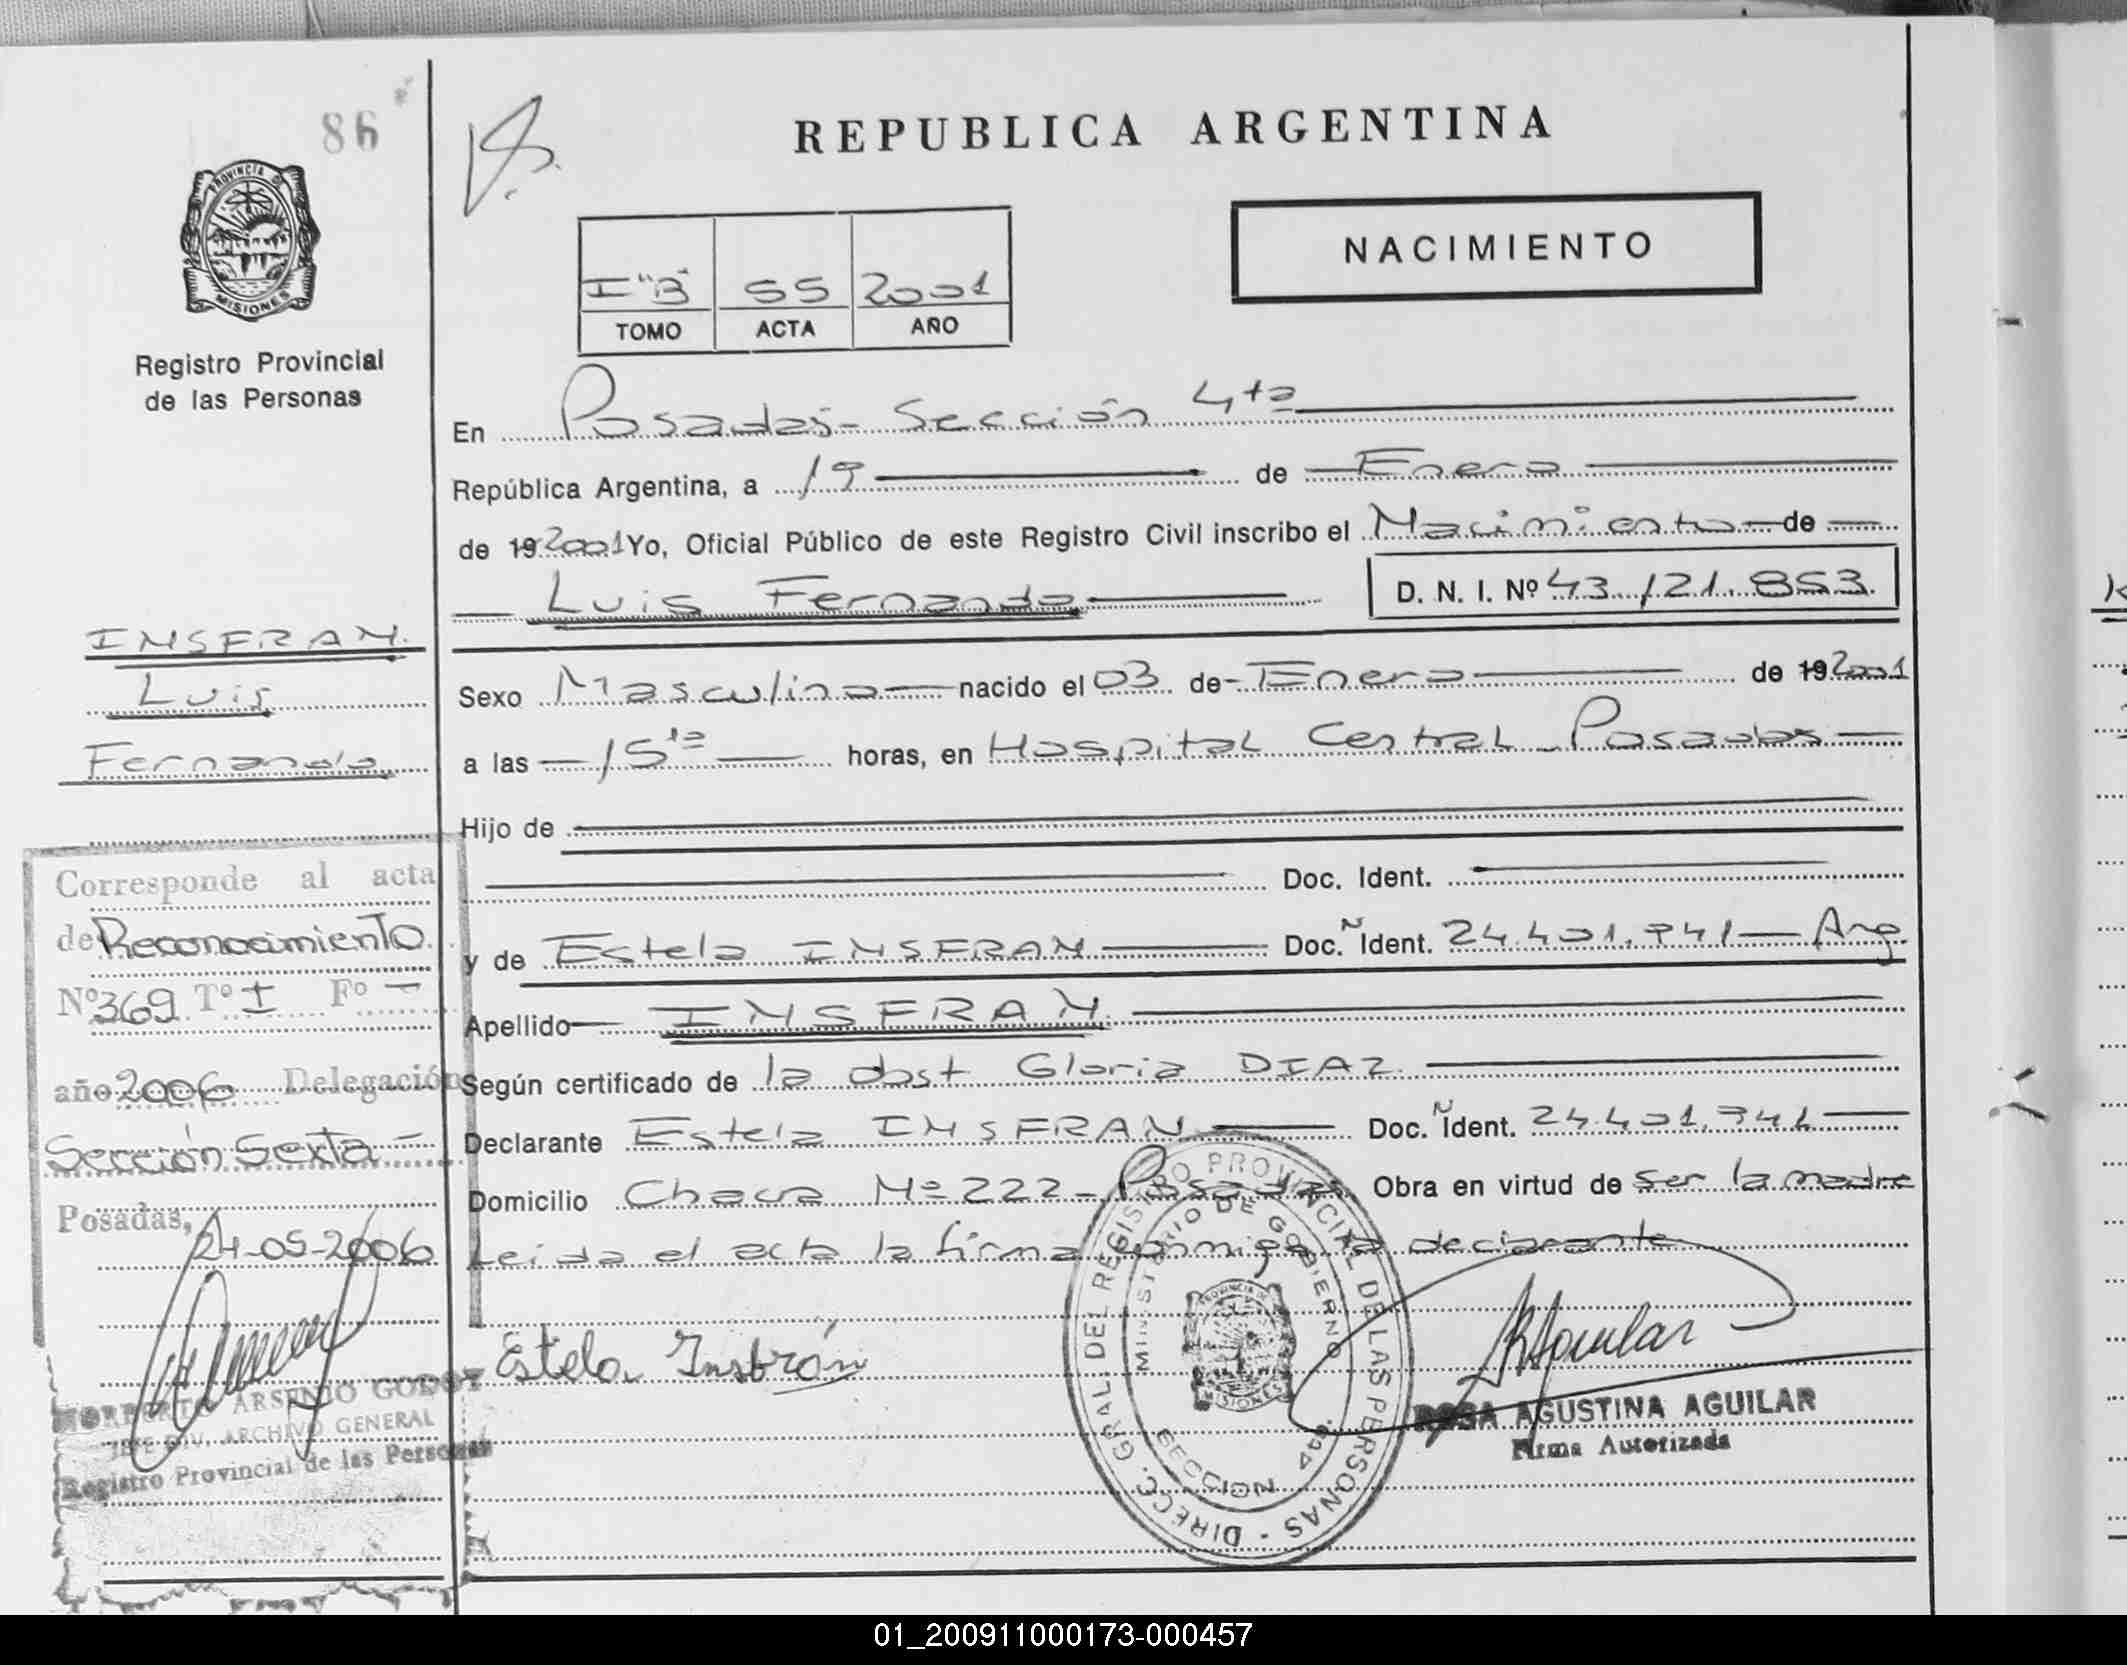 86
REPUBLICA ARGENTINA
NACIMIENTO
I "B" 55 2001
TOMO ACTA AÑO
PROVINCIA DE
MISIONES
Registro Provincial
de las Personas
En Posadas - Sección 4ta
República Argentina, a 19 de Enero
de 19 2001 Yo, Oficial Público de este Registro Civil inscribo el Nacimiento de
Luis Fernando D. N. I. Nº 43.121.853
INSFRAN
Luis
Fernando
Sexo Masculino nacido el 03 de Enero de 19 2001
a las 15 horas, en Hospital Central - Posadas
Hijo de
Doc. Ident.
y de Estela INSFRAN Doc. Ñ Ident. 24.401.941 Arg.
Apellido INSFRAN
Según certificado de la obst Gloria DIAZ
Declarante Estela INSFRAN Doc. Ñ Ident. 24.401.941
Domicilio Chacra Nº 222 - Posadas Obra en virtud de ser la madre
Leida el acta la firma conmigo la declarante
Corresponde al acta
de Reconocimiento
Nº 369 Tº I Fº -
año 2006 Delegación
Sección Sexta -
Posadas,
24-05-2006
NORBERTO ARSENIO GODOY
JEFE DIV. ARCHIVO GENERAL
Registro Provincial de las Personas
Estela Insfrán
DIRECC. GRAL. DEL REGISTRO PROVINCIAL DE LAS PERSONAS -
MINISTERIO DE GOBIERNO
PROVINCIA DE
MISIONES
SECCION 4ta.
RAguilar
ROSA AGUSTINA AGUILAR
Firma Autorizada
01_200911000173-000457